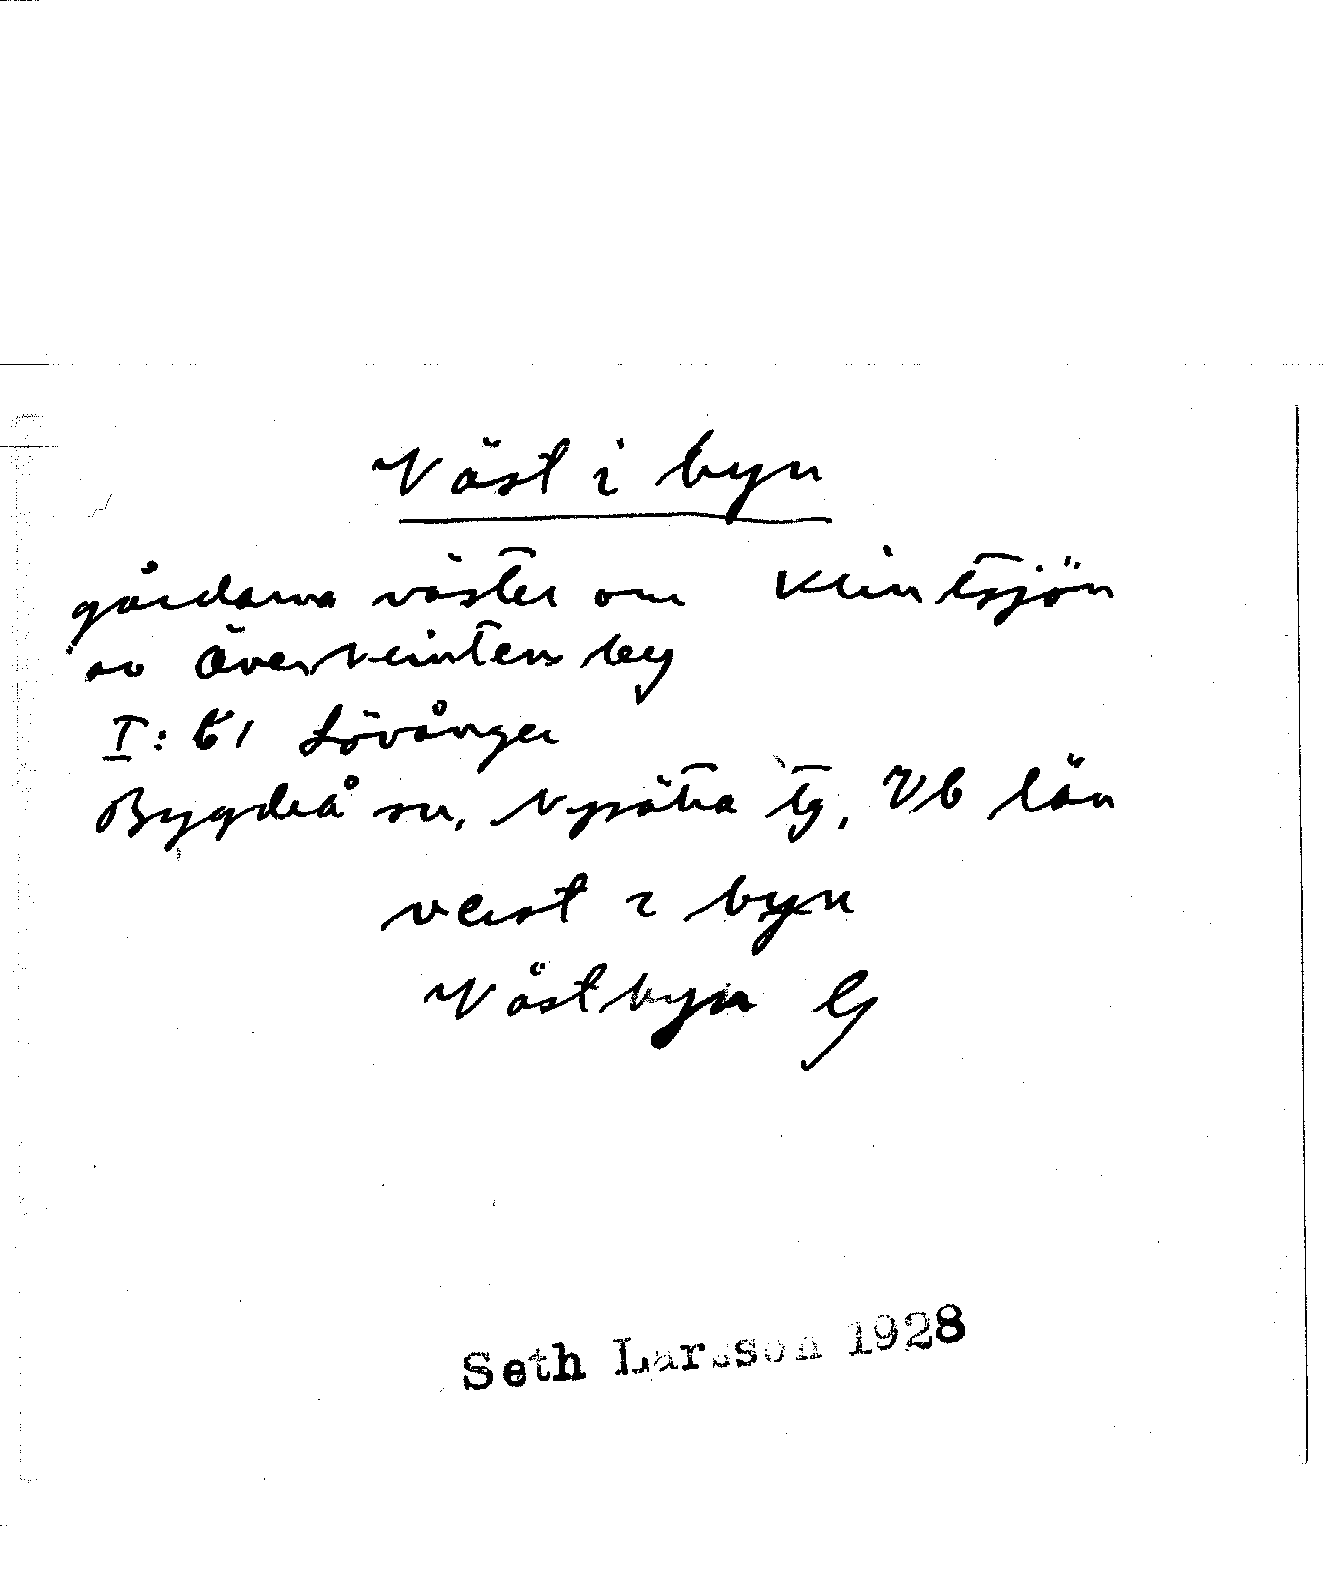 Väst i byn
gårdarna väster om Klintsjön
av Överklinten by
I: 61 Lövånger
Bygdeå sn, Nysätra tg, Vb län
väst i byn
Västbyn G
Seth Larsson 1928